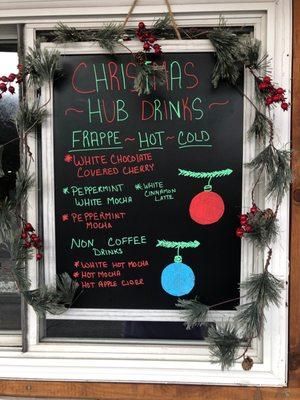 CHRISTMAS
~HUB DRINKS~
FRAPPE~HOT~COLD
*WHITE CHOCOLATE
COVERED CHERRY
*PEPPERMINT
WHITE MOCHA
*WHITE
CINNAMON
LATTE
*PEPPERMINT
MOCHA
NON COFFEE
DRINKS
*WHITE HOT MOCHA
*HOT MOCHA
*HOT APPLE CIDER